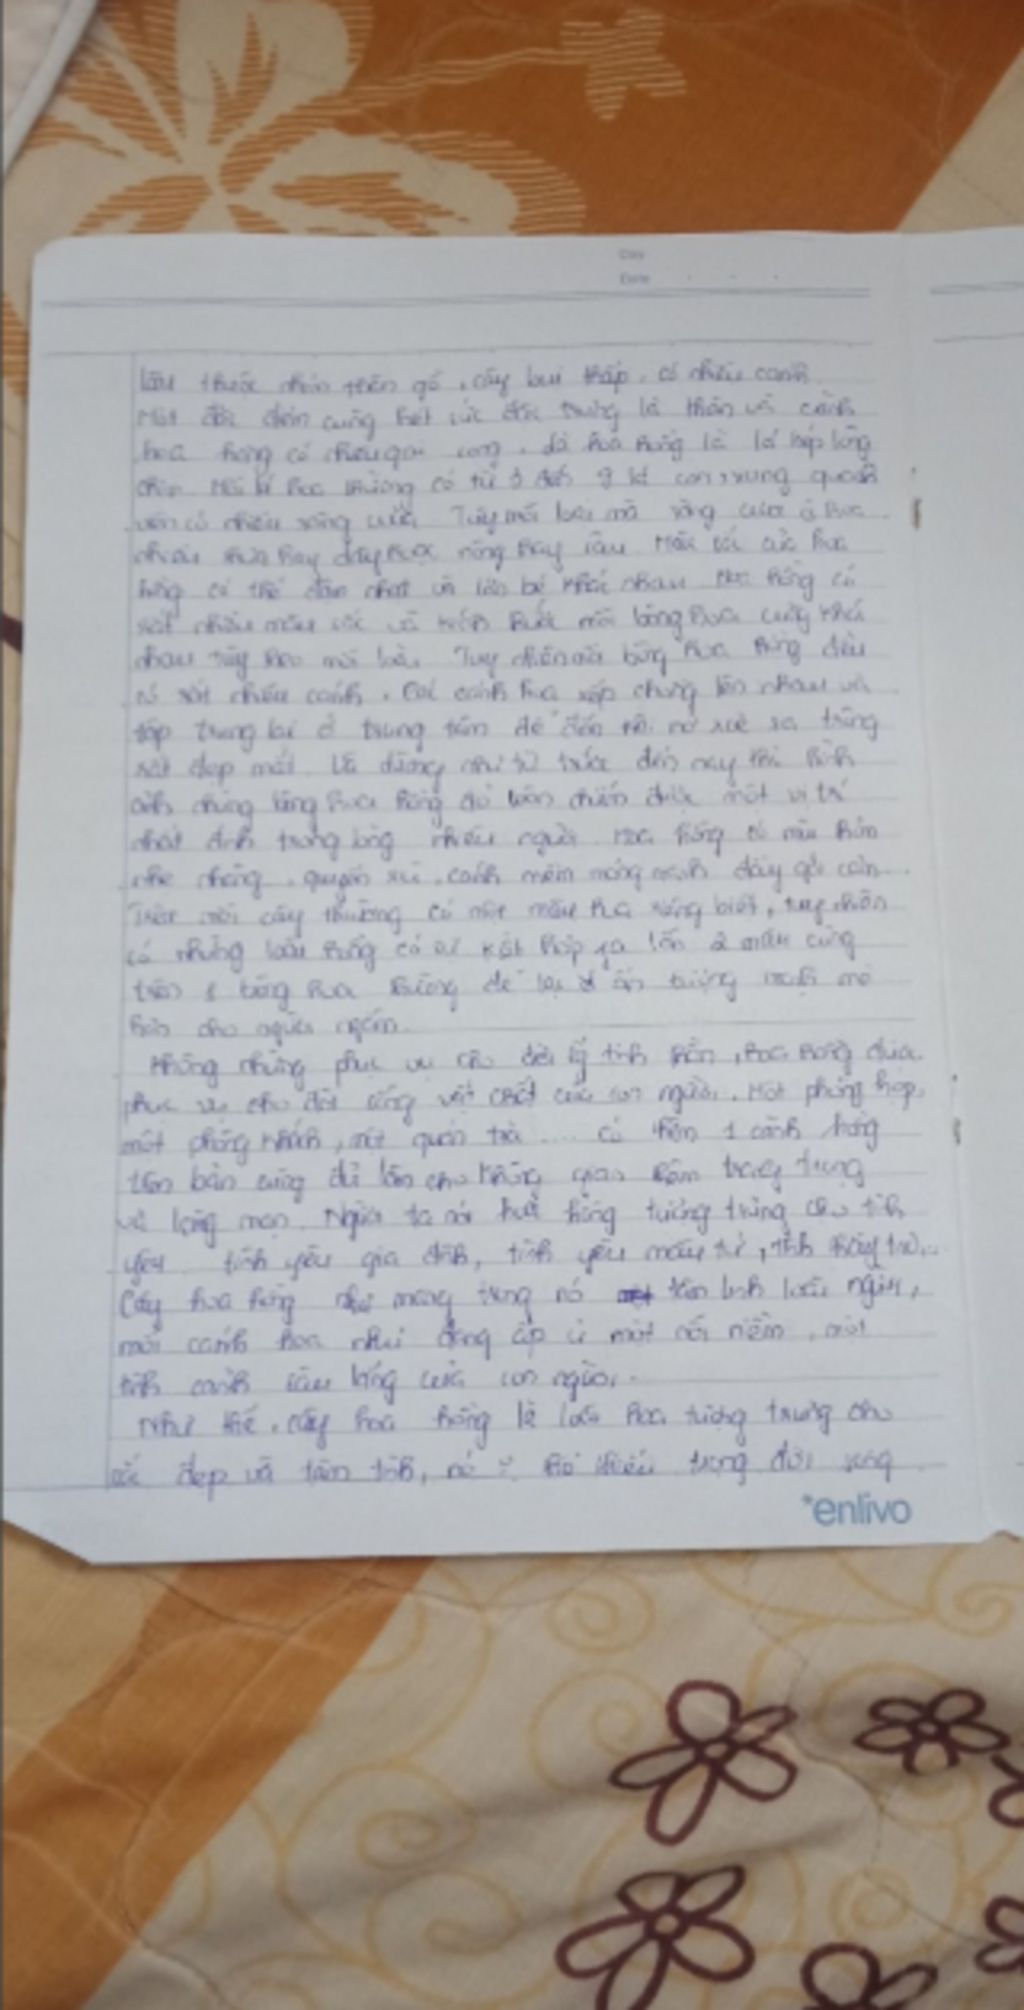 Day
Date
lâu thuộc nhóm thân gỗ, cây bụi thấp, có nhiều cành
Một đặc điểm cũng hết sức đặc trưng là thân và cành
hoa hồng có nhiều gai cong, lá hoa hồng là lá kép lông
chim. Mỗi lá hoa thường có từ 3 đến 9 lá con, xung quanh
viền có nhiều răng cưa. Tùy mỗi loài mà răng cưa ở hoa
hay nông hay sâu. Màu sắc của hoa
hồng có thể đậm nhạt và to bé khác nhau. Hoa hồng có
rất nhiều màu sắc và kích thước mỗi bông hoa cũng khác
nhau tùy theo mỗi loài. Tuy nhiên mỗi bông hoa hồng đều
có rất nhiều cánh. Các cánh hoa xếp chồng lên nhau và
tập trung lại ở trung tâm để đến khi nở xoè ra trông
rất đẹp mắt. Và dường như từ trước đến nay thì hình
ảnh những bông hoa hồng đỏ luôn chiếm được một vị trí
nhất định trong lòng nhiều người. Hoa hồng có mùi thơm
nhẹ nhàng, quyến rũ, cánh mềm mỏng manh đầy gợi cảm.
Trên mỗi cây thường có một màu hoa riêng biệt, tuy nhiên
có những loài hồng có sự kết hợp 2 màu cùng
trên 1 bông hoa thường để lại ấn tượng mạnh mẽ
hơn cho người ngắm.
Không những phục vụ cho đời tinh thần, hoa hồng được
phục vụ cho đời sống vật chất của con người. Một phòng họp,
một phòng khách, một quán trà .... có thêm 1 cành hồng
trên bàn cũng đủ làm cho không gian thêm trang trọng
và lãng mạn. Người ta nói hoa hồng tượng trưng cho tình
yêu tình yêu gia đình, tình yêu mẫu tử, tình thầy trò...
Cây hoa hồng như mang trong nó tâm linh loài người,
mỗi cánh hoa như đang ấp ủ một nỗi niềm, một
tình cảnh sâu lắng của con người.
Như thế, cây hoa hồng là loài hoa tượng trưng cho
cái đẹp và tâm tình, nó trong đời sống
enlivo